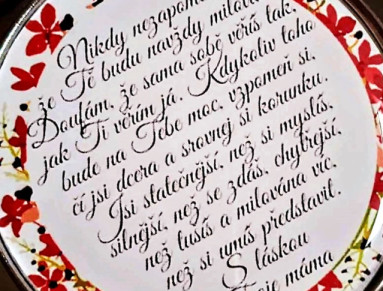 Nikdy nezapome
že Tě budu navždy milova
Doufám, že sama sobě věříš tak,
jak Ti věřím já. Kdykoliv toho
bude na Tebe moc, vzpomeň si,
čí jsi dcera a srovnej si korunku.
Jsi statečnější, než si myslíš,
silnější, než se zdáš, chytřejší,
než tušíš a milována víc,
než si umíš představit.
S láskou
Tvoje máma